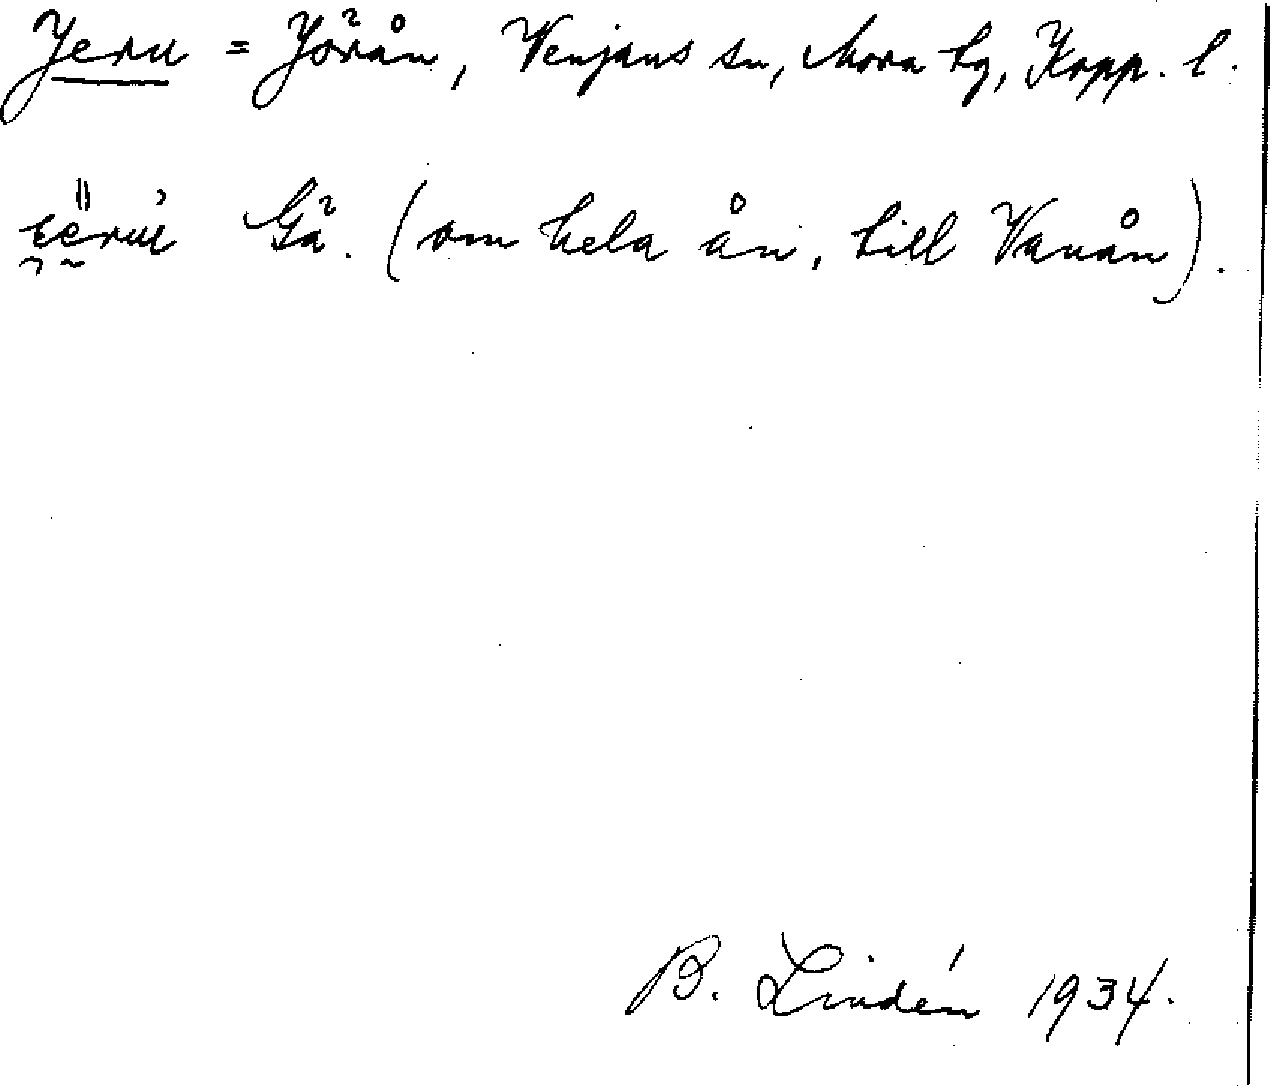 Jeru = Jörån, Venjans sn, Mora tg, Kopp. l.
Gä. (om hela ån, till Vanån).
B. Lindén 1934.